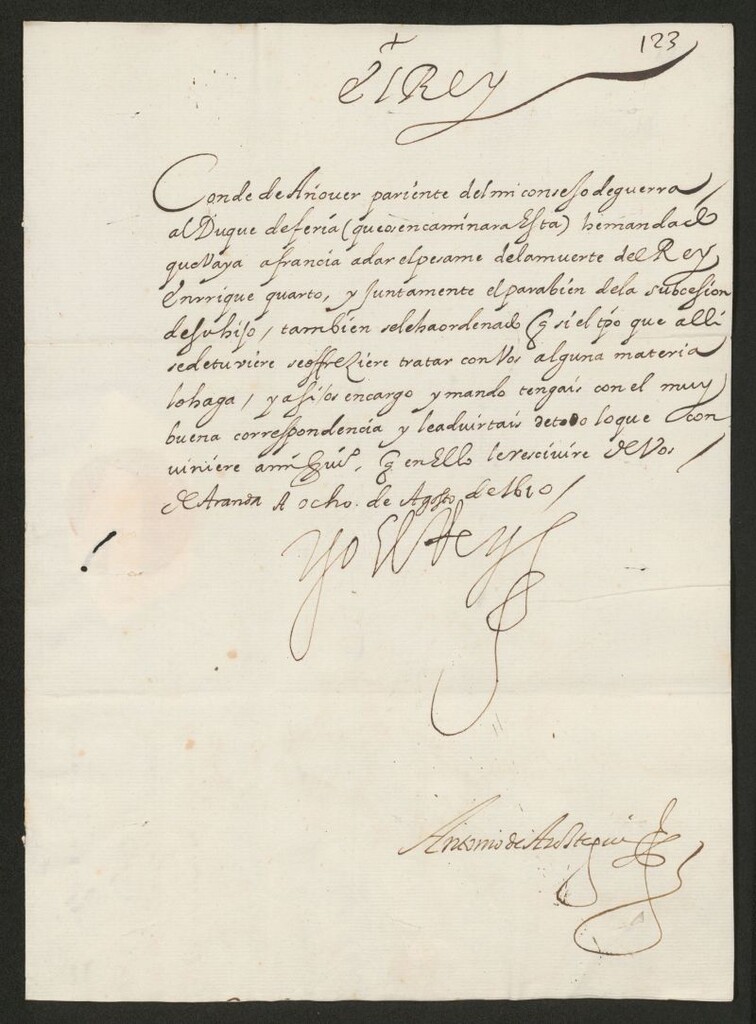 123
+
El Rey
Conde de Añover pariente del mi consejo de guerra
al Duque de feria (que os encaminara Esta) he mandado
que Vaya a francia a dar el pesame de la muerte del Rey
Enrrique quarto, y juntamente el parabien de la subcesion
de su hijo, tambien se le ha ordenado q si el tpo que alli
se detuviere se offreziere tratar con Vos alguna materia
lo haga, y assi os encargo y mando tengais con el muy
buena correspondencia y le advirtais de todo lo que con
viniere a mi servi.º, q en Ello le rescivire de Vos
de Aranda A ocho de Agosto de 1610
Yo El Rey
Antonio de Aroztegui